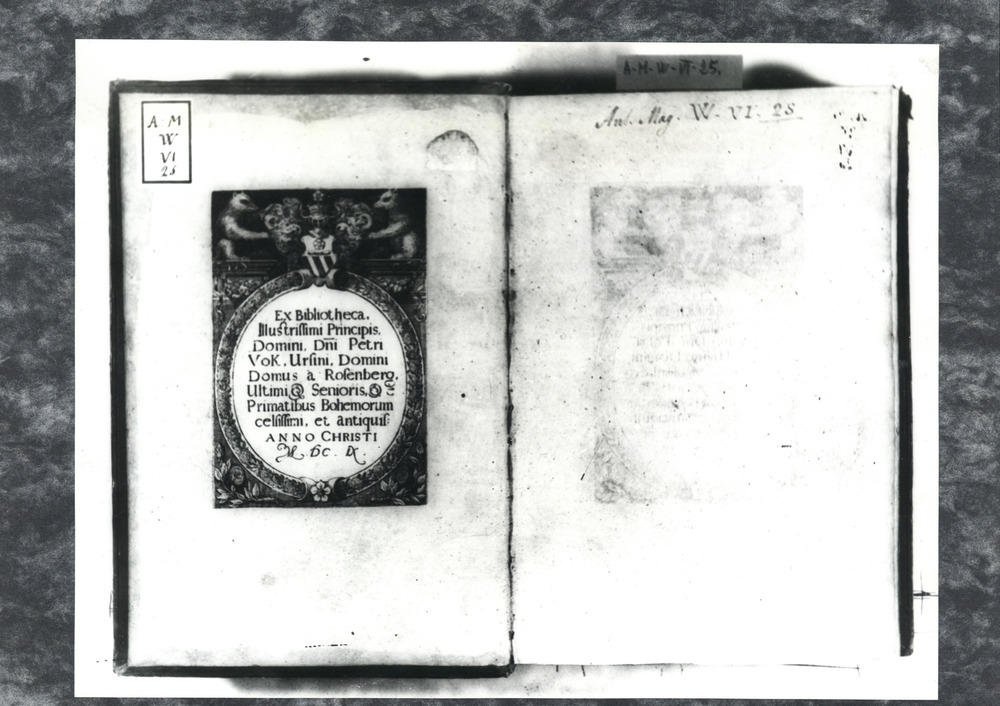 A M
W
VI
25
Ex Bibliotheca,
Illustrissimi Principis,
Domini, Dn̄i Petri
VoK, Ursini, Domini
Domus à Rosenberg,
Ultimi Q Senioris, Q ē
Primatibus Bohemorum
celsissimi, et antiquis:
ANNO CHRISTI
M. DC. IX.
A-M-W-VI-25.
Ant. Mag. W. VI. 25